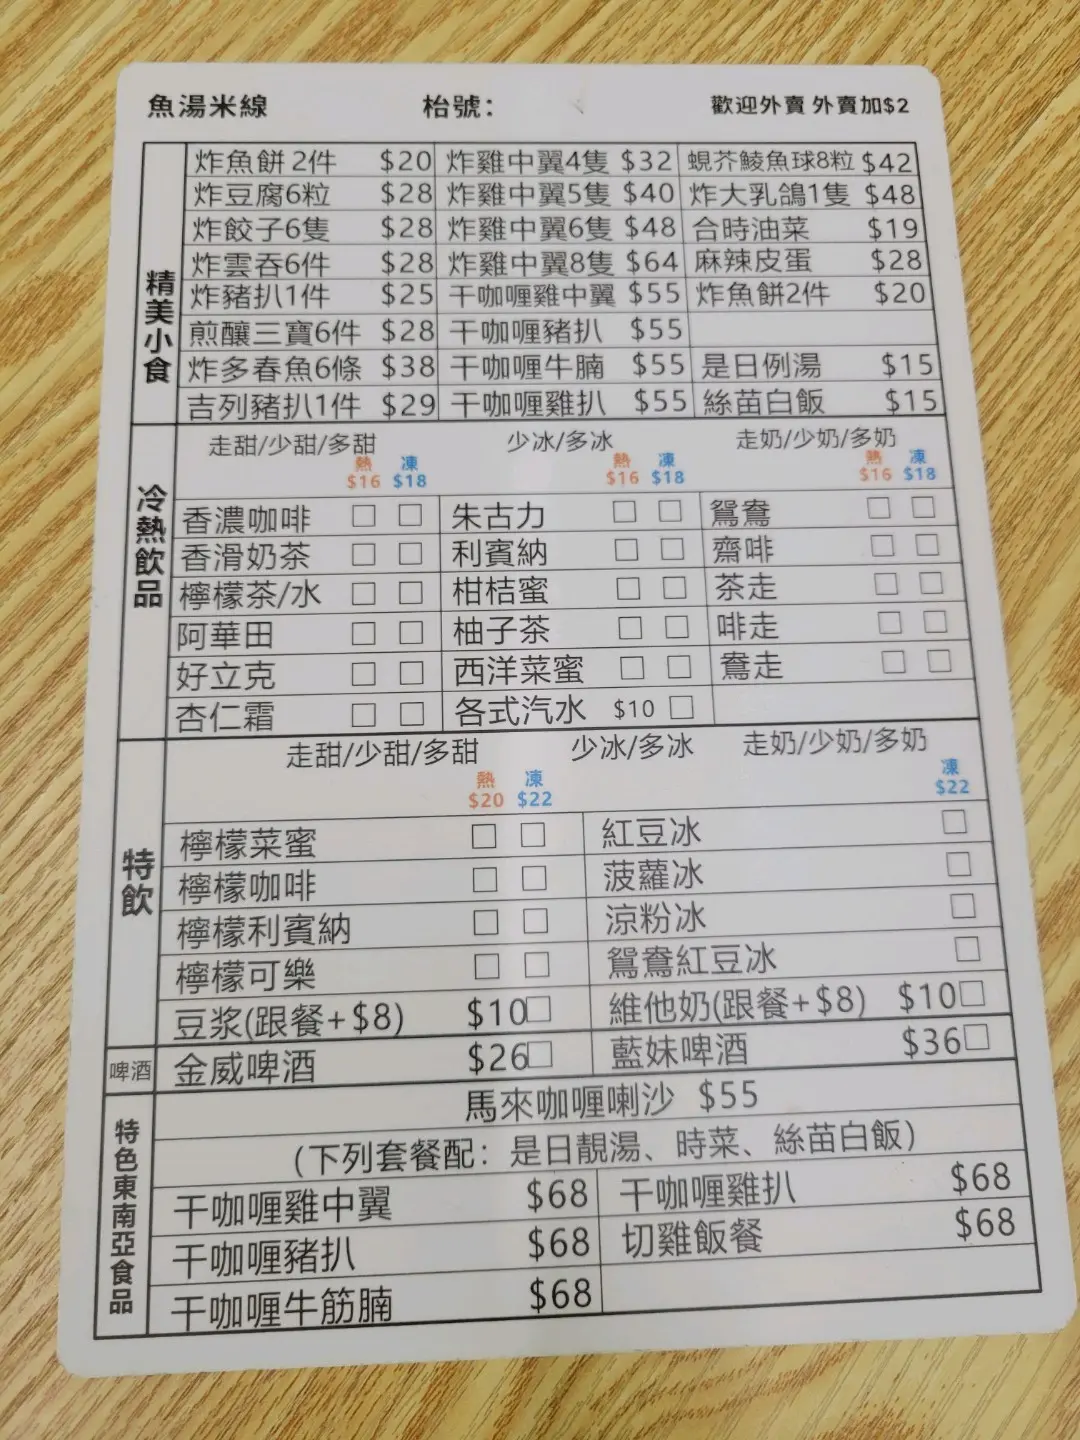 魚湯米線 枱號： 歡迎外賣 外賣加$2
精美小食
炸魚餅 2件 $20 炸雞中翼4隻 $32 蜆芥鯪魚球8粒 $42
炸豆腐6粒 $28 炸雞中翼5隻 $40 炸大乳鴿1隻 $48
炸餃子6隻 $28 炸雞中翼6隻 $48 合時油菜 $19
炸雲吞6件 $28 炸雞中翼8隻 $64 麻辣皮蛋 $28
炸豬扒1件 $25 干咖喱雞中翼 $55 炸魚餅2件 $20
煎釀三寶6件 $28 干咖喱豬扒 $55
炸多春魚6條 $38 干咖喱牛腩 $55 是日例湯 $15
吉列豬扒1件 $29 干咖喱雞扒 $55 絲苗白飯 $15
冷熱飲品
走甜/少甜/多甜 少冰/多冰 走奶/少奶/多奶
熱 凍 熱 凍 熱 凍
$16 $18 $16 $18 $16 $18
香濃咖啡 □ □ 朱古力 □ □ 鴛鴦 □ □
香滑奶茶 □ □ 利賓納 □ □ 齋啡 □ □
檸檬茶/水 □ □ 柑桔蜜 □ □ 茶走 □ □
阿華田 □ □ 柚子茶 □ □ 啡走 □ □
好立克 □ □ 西洋菜蜜 □ □ 鴦走 □ □
杏仁霜 □ □ 各式汽水 $10 □
特飲
走甜/少甜/多甜 少冰/多冰 走奶/少奶/多奶
熱 凍 凍
$20 $22 $22
檸檬菜蜜 □ □ 紅豆冰 □
檸檬咖啡 □ □ 菠蘿冰 □
檸檬利賓納 □ □ 涼粉冰 □
檸檬可樂 □ □ 鴛鴦紅豆冰 □
豆浆(跟餐+$8) $10□ 維他奶(跟餐+$8) $10□
啤酒 金威啤酒 $26□ 藍妹啤酒 $36□
特色東南亞食品
馬來咖喱喇沙 $55
(下列套餐配：是日靚湯、時菜、絲苗白飯)
干咖喱雞中翼 $68 干咖喱雞扒 $68
干咖喱豬扒 $68 切雞飯餐 $68
干咖喱牛筋腩 $68